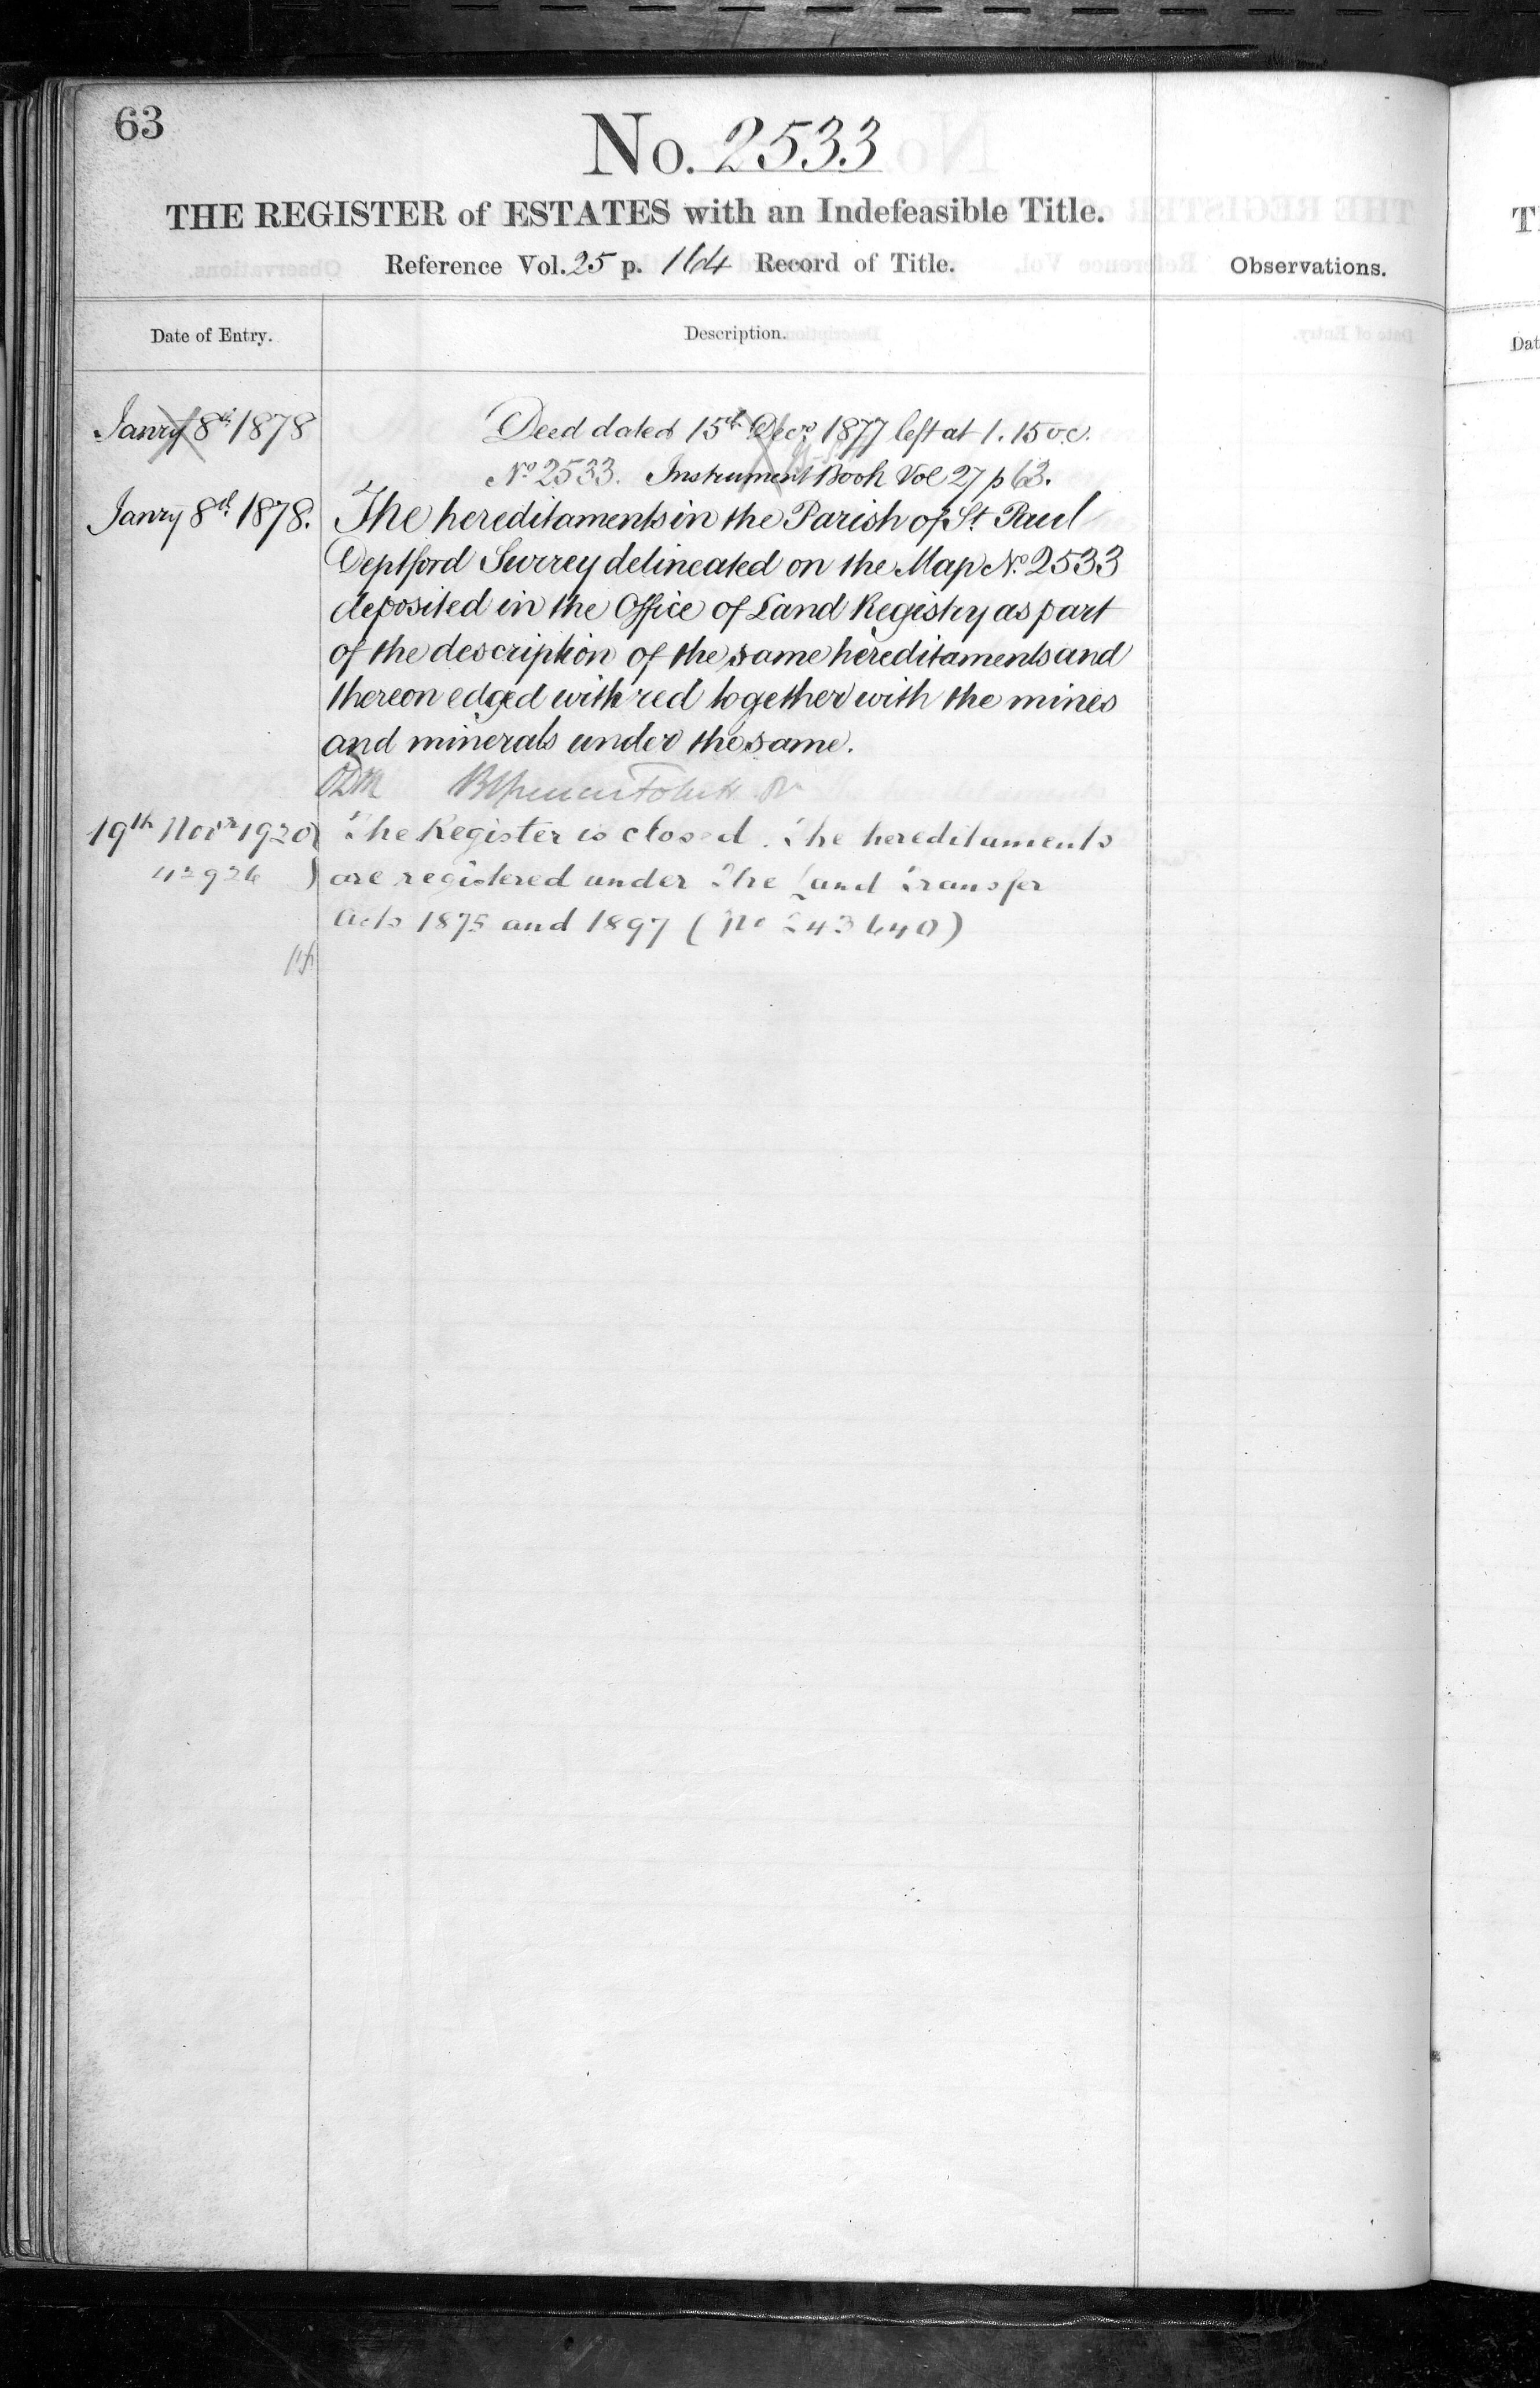 63
No. 2533
THE REGISTER of ESTATES with an Indefeasible Title.
Reference Vol. 25 p. 164 Record of Title.
Observations.
Date of Entry.
Description.
Janry 8th 1878
Deed dated 15th Decr. 1877 left at 1.15 o.c.
No 2533. Instrument Book Vol 27 p 63.
Janry 8th 1878. The hereditaments in the Parish of St. Paul
Deptford Surrey delineated on the Map No. 2533
deposited in the Office of Land Registry as part
of the description of the same hereditaments and
thereon edged with red together with the mines
and minerals under the same.
19th Novr 1920 The Register is closed. The hereditaments
are registered under The Land Transfer
Acts 1875 and 1897 (No 243640)